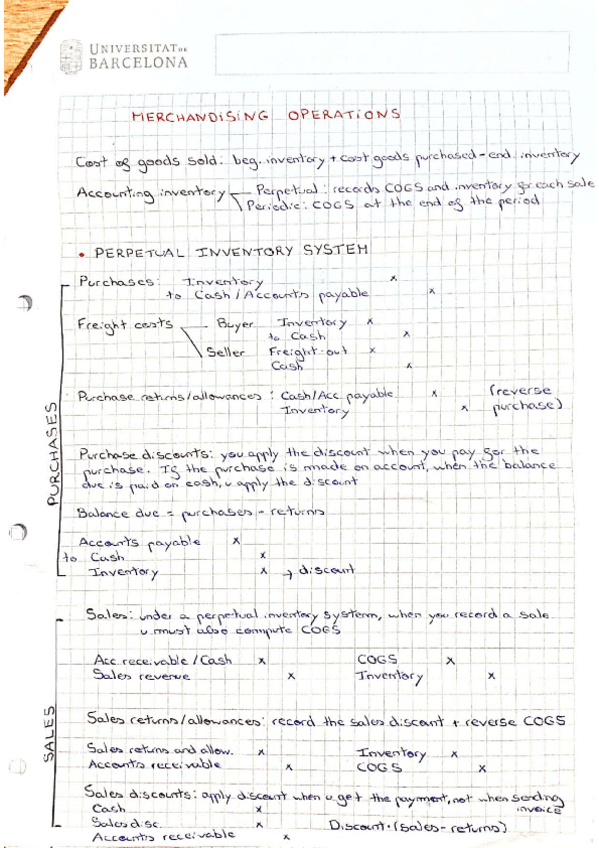 UNIVERSITAT DE
BARCELONA
MERCHANDISING OPERATIONS
Cost of goods sold: beg. inventory + cost goods purchased - end. inventory
Accounting inventory Perpetual: records COGS and inventory for each sale
Periodic: COGS at the end of the period
• PERPETUAL INVENTORY SYSTEM
PURCHASES
Purchases: Inventory x
to Cash / Accounts payable x
Freight costs Buyer Inventory x
to Cash x
Seller Freight-out x
Cash x
Purchase returns/allowances: Cash/Acc. payable x (reverse
Inventory x purchase)
Purchase discounts: you apply the discount when you pay for the
purchase. If the purchase is made on account, when the balance
due is paid on cash, u apply the discount
Balance due = purchases - returns
Accounts payable x
to Cash x
Inventory x → discount
SALES
Sales: under a perpetual inventory system, when you record a sale
u must also compute COGS
Acc. receivable / Cash x COGS x
Sales revenue x Inventory x
Sales returns/allowances: record the sales discount + reverse COGS
Sales returns and allow. x Inventory x
Accounts receivable x COGS x
Sales discounts: apply discount when u get the payment, not when sending
invoice
Cash x
Sales disc. x Discount·(sales-returns)
Accounts receivable x